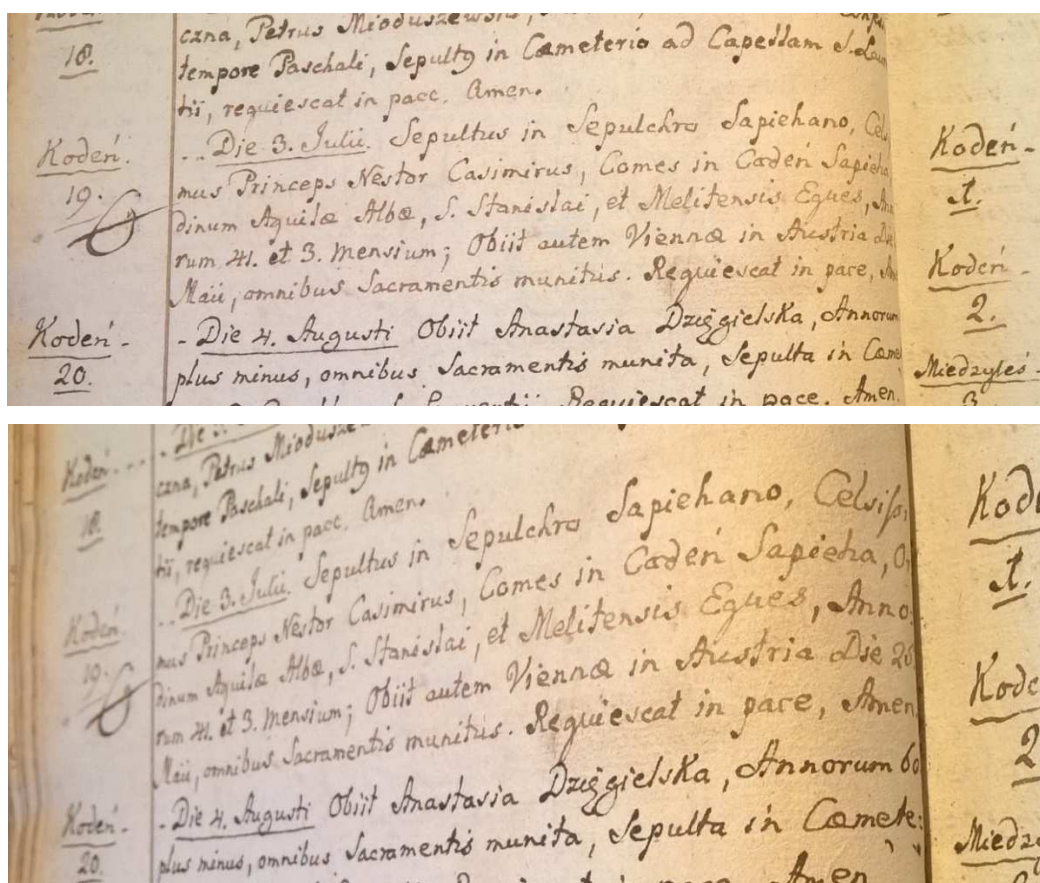 18.
czna, Petrus Mioduszewski,
tempore Paschali, Sepultq in Cœmeterio ad Capellam S. Lau
tii, requiescat in pace. Amen.
Kodeń.
19.
.. Die 3. Julii. Sepultus in Sepulchro Sapiehano, Cels
mus Princeps Nestor Casimirus, Comes in Codeń Sapieha
dinum Aquilæ Albæ, S. Stanislai, et Melitensis Eques, An
rum 41. et 3. mensium; Obiit autem Viennæ in Austria Die
Maii, omnibus Sacramentis munitus. Requiescat in pace, Am
Kodeń -
20.
- Die 4. Augusti Obiit Anastasia Dzięgielska, Annorum
plus minus, omnibus Sacramentis munita, Sepulta in Cœme
Requiescat in pace. Amen.
Kodeń -
1.
Kodeń -
2.
Miedzyleś -
3.
Kodeń - - -
18.
czna, Petrus Miodusze
tempore Paschali, Sepultq in Cœmeterio
tii, requiescat in pace. Amen.
Kodeń
19.
.. Die 3. Julii. Sepultus in Sepulchro Sapiehano, Celsiſsi
mus Princeps Nestor Casimirus, Comes in Codeń Sapieha, O
dinum Aquilæ Albæ, S. Stanislai, et Melitensis Eques, Anno
rum 41. et 3. mensium; Obiit autem Viennæ in Austria Die 26
Maii, omnibus Sacramentis munitus. Requiescat in pace, Amen.
Kodeń -
20.
- Die 4. Augusti Obiit Anastasia Dzięgielska, Annorum 60
plus minus, omnibus Sacramentis munita, Sepulta in Cœmete:
pace, Amen
Kode
1.
Kode
2
Miedz